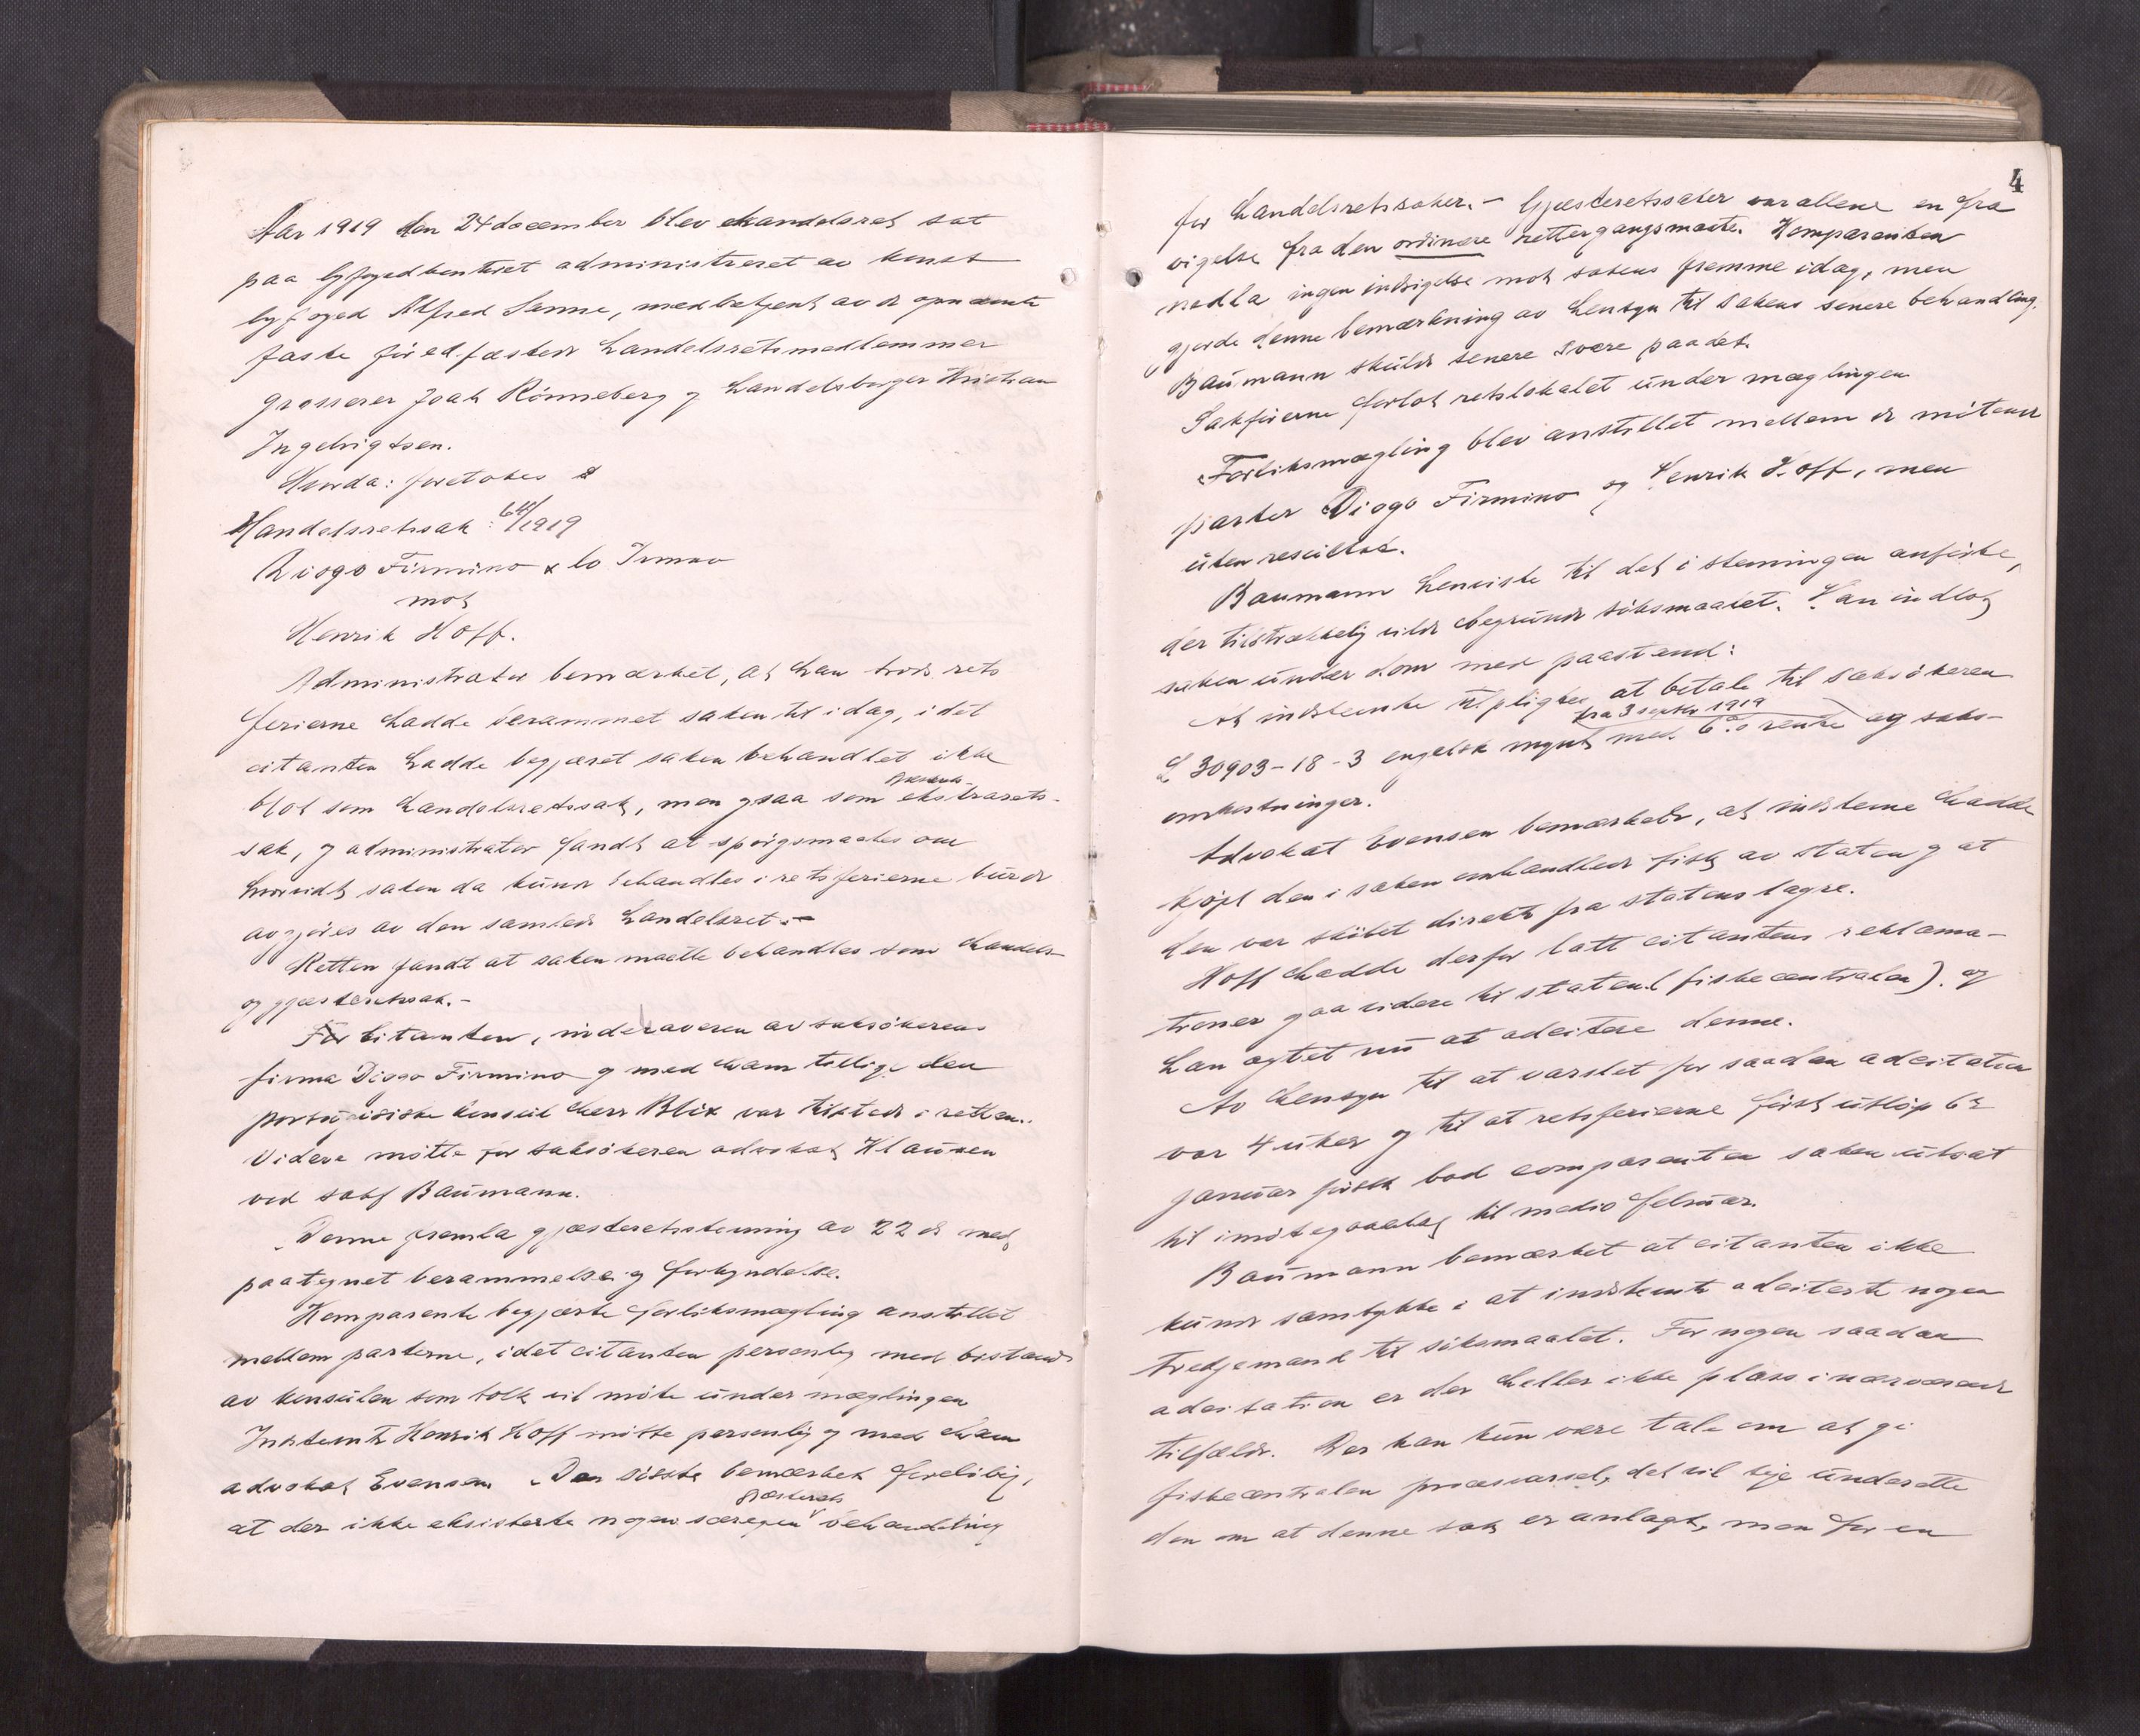 Aar 1919 den 24 december blev handelsret sat
paa byfogedkontoret administreret av konst
byfoged Alfred Sanne, medbetjent av de opnævnte
faste søedfæstede handelsretsmedlemmer
grosserer Joak Rønneberg og handelsborger Kristian
Ingebrigtsen.
Hvorda: foretokes
Handelsretssak: 64/1919
Diogo Firmino & Co Irmao
mot
Henrik Hoff.
Administrator bemærket, at han trods rets
ferierne hadde berammet saken til idag, idet
citanten hadde begjæret saken behandlet ikke
blot som handelsretssak, men ogsaa som ekstrarets-
sak, og administrator fandt at spørgsmaalet om
hvorvidt saken da kunde behandles i retsferierne burde
avgjøres av den samlede handelsret. -
Retten fandt at saken maatte behandles som handels-
og gjæsteretssak. -
For Citanten, indehaveren av saksøkerens
firma Diogo Firmino og med ham tillige den
portugisiske konsul herr Blix var tilstede i retten.
Videre møtte for saksøkeren advokat Klausen
ved sakf Baumann.
Denne fremla gjæsteretsstevning av 22 ds med
paategnet berammelse og forkyndelse.
Komparente begjærte forliksmægling anstillet
mellem parterne, idet citanten personlig med bistand
av konsulen som tolk vil møte under mæglingen
Indstevnte Henrik Hoff møtte personlig og med ham
advokat Evensen. Den sidste bemærket foreløbig,
gjæsterets
at der ikke eksisterte nogen særegen behandling
4
for handelsretssaker. - Gjæsteretssaker var allene en fra
vigelse fra den ordinære rettergangsmaate. Komparenten
nedla ingen indsigelse mot sakens fremme idag, men
gjorde denne bemærkning av hensyn til sakens senere behandling.
Baumann skulde senere svare paa det.
Sakførerne forlot retslokalet under mæglingen
Forliksmægling blev anstillet mellem de møtende
parter Diogo Firmino og Henrik Hoff, men
uten resultat.
Baumann henviste til det i stevningen anførte,
der tilstrækkelig vilde begrunde søksmaalet. Han indlot
saken under dom med paastand:
At indstevnte tilpligtes at betale til saksøkeren
fra 3 septbr 1919
£ 30903-18-3 engelsk mynt med 6% rente og saks-
omkostninger.
Advokat Evensen bemærkede, at indstevnte hadde
kjøpt den i saken omhandlede fisk av staten og at
den var skibet direkte fra statens lagre.
Hoff hadde derfor latt citantens reklama-
tioner gaa videre til staten (fiskecentralen). og
han agtet nu at adcitere denne.
Av hensyn til at varslet for saadan adcitation
var 4 uker og til at retsferierne først utløp 6te
januar førstk bad comparenten saken utsat
til imøtegaaelse til medio februar.
Baumann bemærket at citanten ikke
kunde samtykke i at indstevnte adciterte nogen
tredjemand til søksmaalet. For nogen saadan
adcitation er der heller ikke plass i nærværende
tilfælde. Der kan kun være tale om at gi
fiskecentralen procesvarsel, det vil sige underrette
den om at denne sak er anlagt, men for en